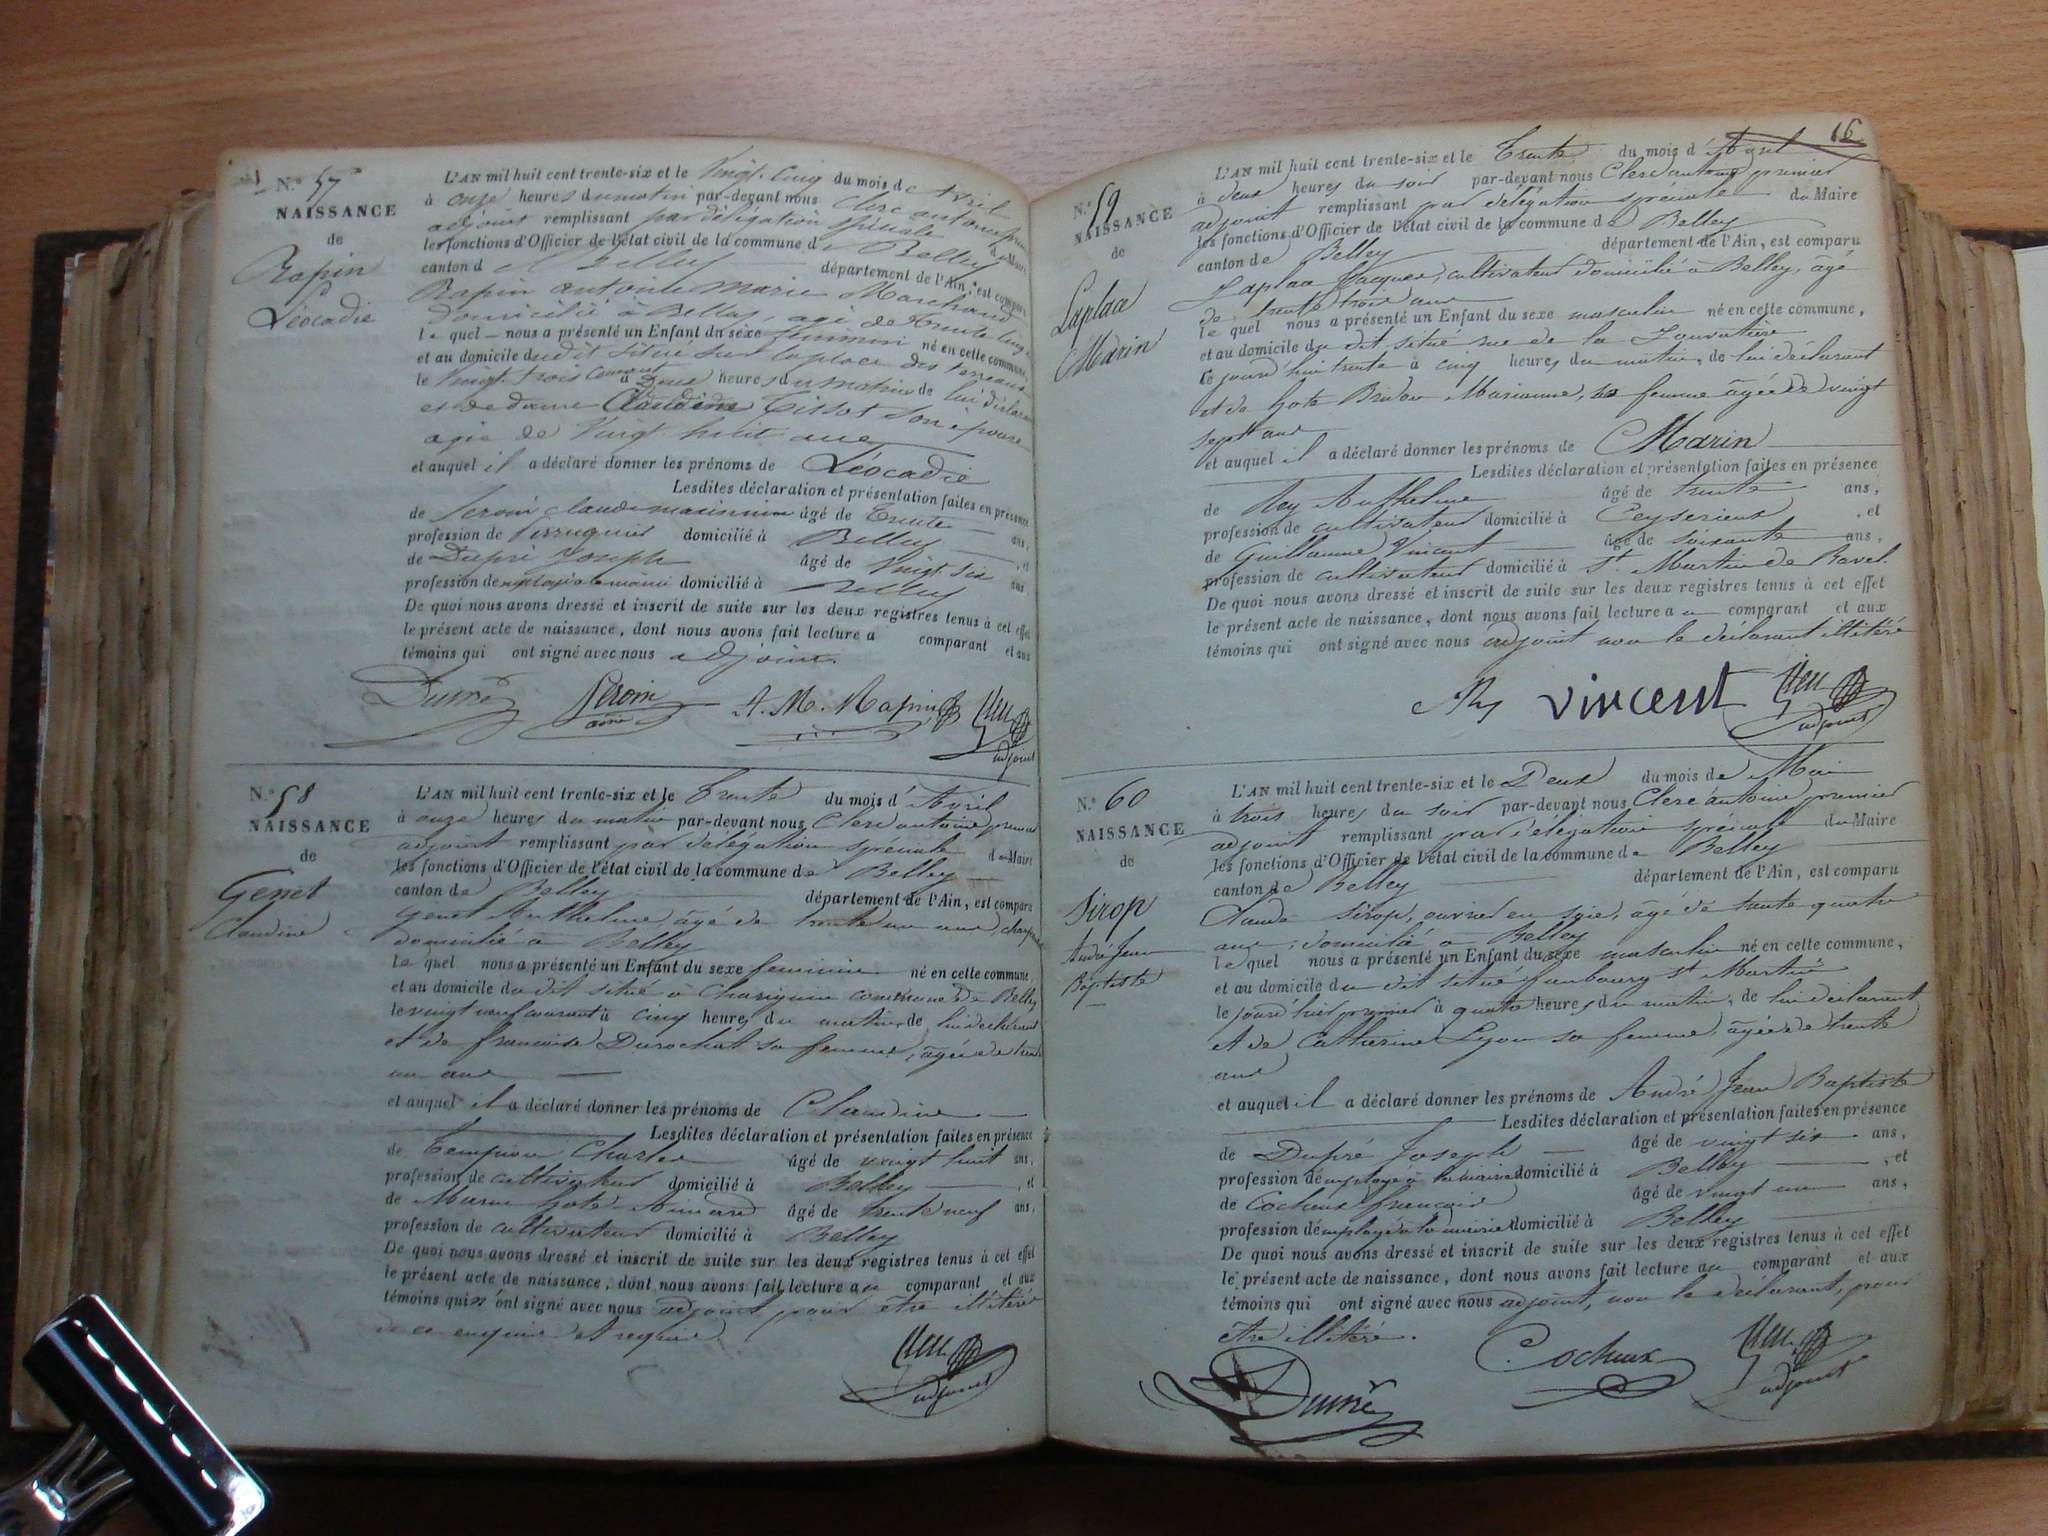 N.º 57
NAISSANCE
de
Rapin
Léocadie
L'AN mil huit cent trente-six et le Vingt cinq du mois de Avril
à onze heures du matin par-devant nous Clerc antoine premier
adjoint remplissant par délégation spéciale du Maire
les fonctions d'Officier de l'état civil de la commune de Belley
canton d Belley département de l'Ain, est comparu
Rapin antoine Marie Marchand
domicilié à Belley, agé de trente cinq
le quel nous a présenté un Enfant du sexe feminin né en cette commune,
et au domicile du dit situé sur la place des terreaux
le Vingt trois courant à Deux heures du matin de lui déclarant
et de dame Claudine Tissot son épouse
agée de Vingt huit ans
et auquel il a déclaré donner les prénoms de Léocadie
Lesdites déclaration et présentation faites en présence
de Peroin claude âgé de Trente ans,
profession de Perruquier domicilié à Belley, et
de Dupré Joseph âgé de Vingt six ans
profession de employé a la mairie domicilié à Belley
De quoi nous avons dressé et inscrit de suite sur les deux registres tenus à cet effet
le présent acte de naissance, dont nous avons fait lecture a comparant et aux
témoins qui ont signé avec nous adjoint.
Dupré Peroin A. M. Rapin
adjoint
N.º 58
NAISSANCE
de
Genet
Claudine
L'AN mil huit cent trente-six et le Trente du mois d'Avril
à onze heures du matin par-devant nous Clerc antoine premier
adjoint remplissant par délégation spéciale du Maire
les fonctions d'Officier de l'état civil de la commune de Belley
canton de Belley département de l'Ain, est comparu
Genet Anthelme âgé de trente un ans,
domicilié à Belley
Le quel nous a présenté un Enfant du sexe feminin né en cette commune,
et au domicile du dit situé à commune de Belley
le vingt neuf courant à cinq heures du matin, de lui déclarant
et de francoise Durochat sa femme, âgée de trente
un ans
et auquel il a déclaré donner les prénoms de Claudine
Lesdites déclaration et présentation faites en présence
de Charles âgé de vingt huit ans,
profession de cultivateur domicilié à Belley, et
de âgé de trente neuf ans,
profession de cultivateur domicilié à Belley
De quoi nous avons dressé et inscrit de suite sur les deux registres tenus à cet effet
le présent acte de naissance, dont nous avons fait lecture au comparant et aux
témoins qui n'ont signé avec nous adjoint, pour être illitérés
de ce enquis et requis.
adjoint
16
N.º 59
NAISSANCE
de
Laplace
Marin
L'AN mil huit cent trente-six et le Trente du mois d'Avril
à deux heures du soir par-devant nous Clerc antoine premier
adjoint remplissant par délégation spéciale du Maire
les fonctions d'Officier de l'état civil de la commune de Belley
canton de Belley département de l'Ain, est comparu
Laplace Jacques, cultivateur domicilié à Belley, âgé
de trente trois ans
le quel nous a présenté un Enfant du sexe masculin né en cette commune,
et au domicile du dit situé rue de la
le jourd'hui trente à cinq heures du matin, de lui déclarant
et de Marianne, sa femme âgée de vingt
sept ans
et auquel il a déclaré donner les prénoms de Marin
Lesdites déclaration et présentation faites en présence
de Rey Anthelme âgé de trente ans,
profession de cultivateur domicilié à Ceyserieux, et
de Guillaume Vincent âgé de soixante ans,
profession de cultivateur domicilié à St Martin de Bavel.
De quoi nous avons dressé et inscrit de suite sur les deux registres tenus à cet effet
le présent acte de naissance, dont nous avons fait lecture a u comparant et aux
témoins qui ont signé avec nous adjoint non le déclarant illitéré
Rey vincent
adjoint
N.º 60
NAISSANCE
de
Sirop
André Jean
Baptiste
L'AN mil huit cent trente-six et le Deux du mois de Mai
à trois heures du soir par-devant nous Clerc antoine premier
adjoint remplissant par délégation spéciale du Maire
les fonctions d'Officier de l'état civil de la commune de Belley
canton de Belley département de l'Ain, est comparu
Claude Sirop, ouvrier en soie, âgé de trente quatre
ans, domicilié à Belley
le quel nous a présenté un Enfant du sexe masculin né en cette commune,
et au domicile du dit situé faubourg St Martin
le jourd'hier premier à quatre heures du matin, de lui déclarant
et de Catherine Lyon sa femme, âgée de trente
ans
et auquel il a déclaré donner les prénoms de André Jean Baptiste
Lesdites déclaration et présentation faites en présence
de Dupré Joseph âgé de vingt six ans,
profession d'employé à la mairie domicilié à Belley, et
de Cocheux francois âgé de vingt un ans,
profession d'employé à la mairie domicilié à Belley
De quoi nous avons dressé et inscrit de suite sur les deux registres tenus à cet effet
le présent acte de naissance, dont nous avons fait lecture au comparant et aux
témoins qui ont signé avec nous adjoint, non le déclarant, pour
être illitéré.
Dupré Cocheux
adjoint